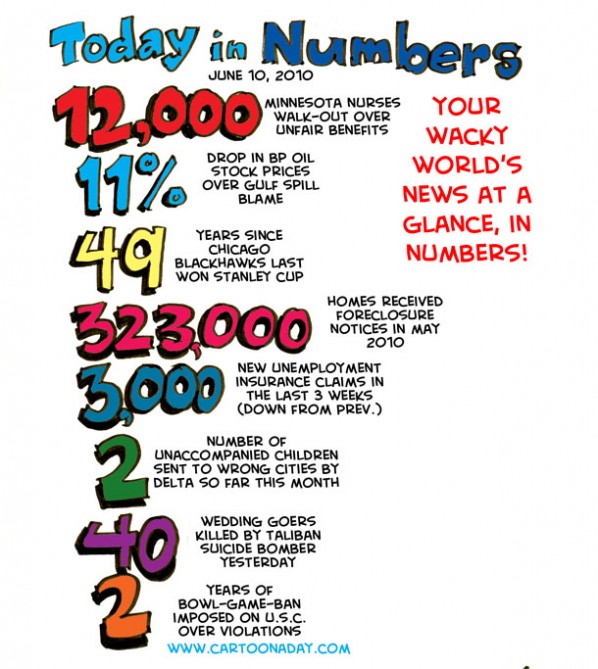 Today in Numbers
JUNE 10, 2010
12,000
MINNESOTA NURSES
WALK-OUT OVER
UNFAIR BENEFITS
YOUR
WACKY
WORLD'S
NEWS AT A
GLANCE, IN
NUMBERS!
11%
DROP IN BP OIL
STOCK PRICES
OVER GULF SPILL
BLAME
49
YEARS SINCE
CHICAGO
BLACKHAWKS LAST
WON STANLEY CUP
323,000
HOMES RECEIVED
FORECLOSURE
NOTICES IN MAY
2010
3,000
NEW UNEMPLOYMENT
INSURANCE CLAIMS IN
THE LAST 3 WEEKS
(DOWN FROM PREV.)
2
NUMBER OF
UNACCOMPANIED CHILDREN
SENT TO WRONG CITIES BY
DELTA SO FAR THIS MONTH
40
WEDDING GOERS
KILLED BY TALIBAN
SUICIDE BOMBER
YESTERDAY
2
YEARS OF
BOWL-GAME-BAN
IMPOSED ON U.S.C.
OVER VIOLATIONS
WWW.CARTOONADAY.COM